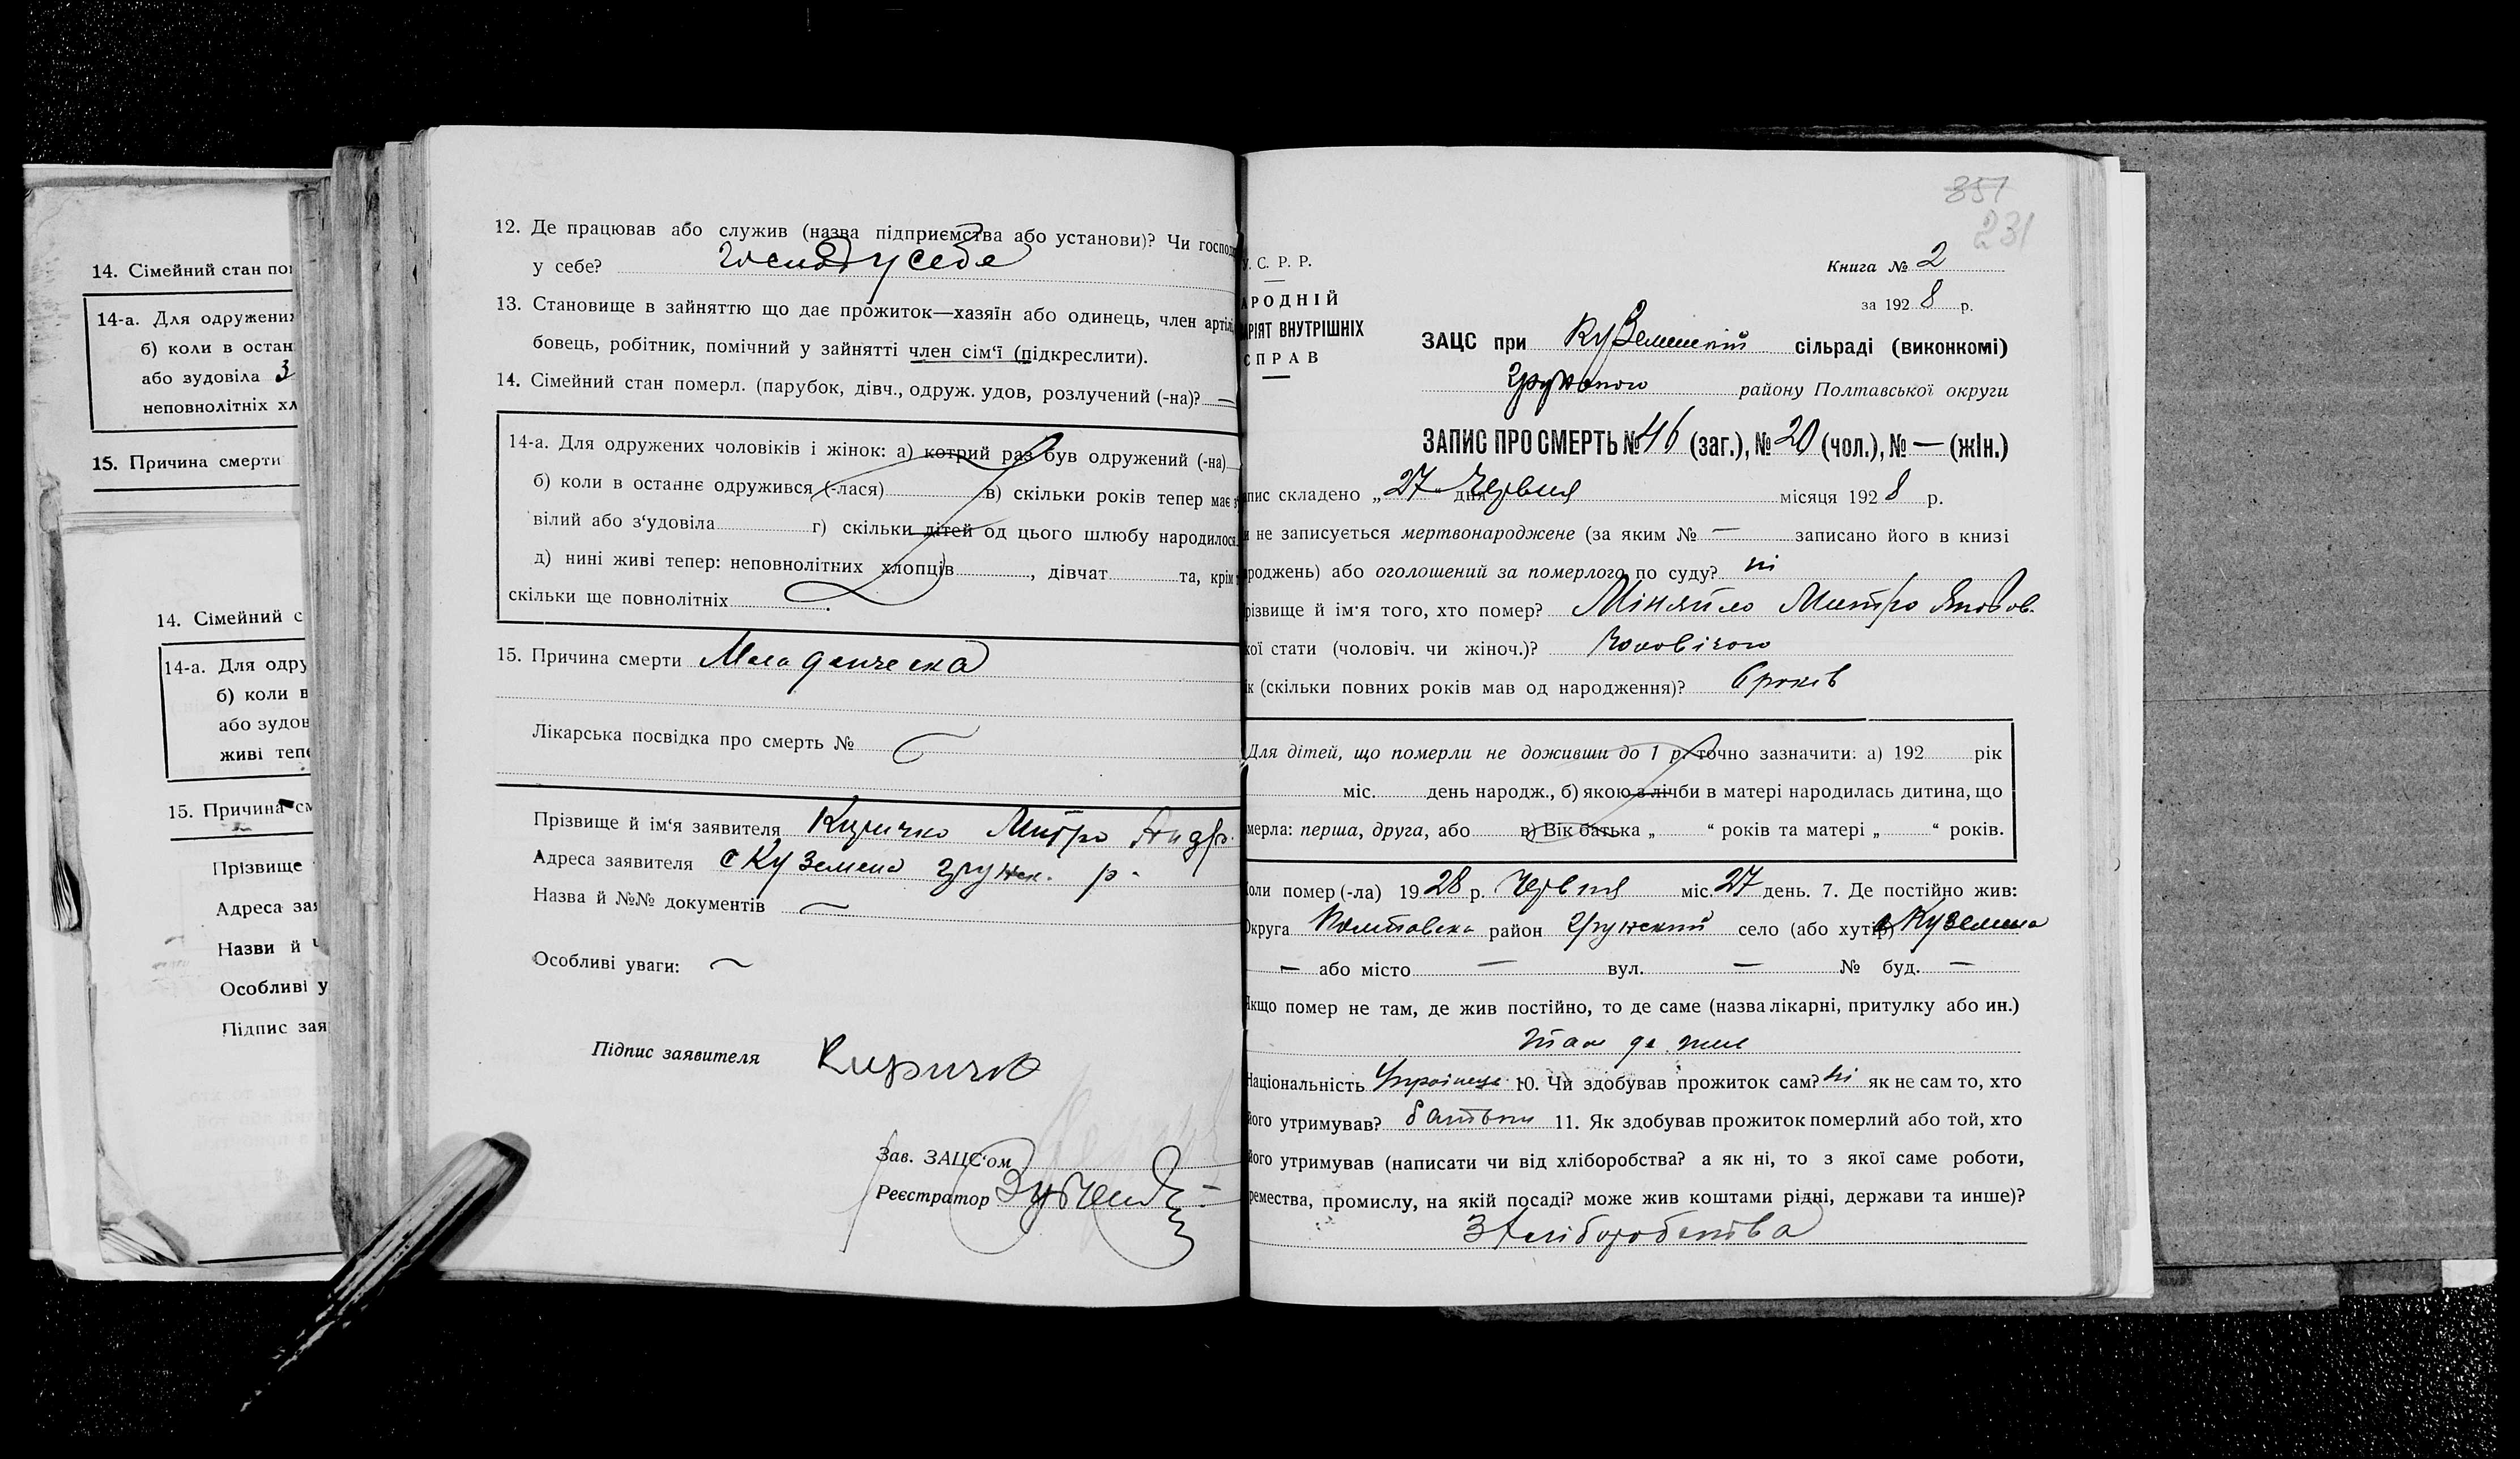 14. Сімейний стан по
14-а. Для одружени
б) коли в остан
або зудовіла 3
неповнолітніх хл
15. Причина смерти
14. Сімейний с
14-а. Для одру
б) коли в
або зудов
живі тепе
15. Причина см
Прізвище
Адреса зая
Назви й ч
Особливі у
Підпис зая
12. Де працював або служив (назва підприємства або установи)? Чи господ
у себе? господ у себе
13. Становище в зайняттю що дає прожиток—хазяїн або одинець, член артілі,
бовець, робітник, помічний у зайнятті член сім‘ї (підкреслити).
14. Сімейний стан померл. (парубок, дівч., одруж. удов, розлучений (-на)? —
14-а. Для одружених чоловіків і жінок: а) котрий раз був одружений (-на)
б) коли в останнє одружився (-лася) в) скільки років тепер має з
вілий або з‘удовіла г) скільки дітей од цього шлюбу народилося
д) нині живі тепер: неповнолітних хлопців , дівчат та, крім
скільки ще повнолітніх .
15. Причина смерти
Лікарська посвідка про смерть № —
Прізвище й ім‘я заявителя Киричко Митро Андр.
Адреса заявителя с Куземено Грунск. р.
Назва й №№ документів —
Особливі уваги: —
Підпис заявителя Киричко
Зав. ЗАЦС‘ом
Реєстратор
351
231
У. С. Р. Р.
АРОДНІЙ
АРІЯТ ВНУТРІШНІХ
СПРАВ
Книга № 2
за 1928 р.
ЗАЦС при Куземенській сільраді (виконкомі)
Грунського району Полтавської округи
ЗАПИС ПРО СМЕРТЬ № 46 (заг.), № 20 (чол.), № — (жін.)
пис складено „27 дня Червня місяця 1928 р.
и не записується мертвонароджене (за яким № — записано його в книзі
роджень) або оголошений за померлого по суду? ні
різвище й ім‘я того, хто помер? Міняйло Митро Яковов.
кої стати (чоловіч. чи жіноч.)? Чоловічого
ік (скільки повних років мав од народження)? 6 років
Для дітей, що померли не доживши до 1 р. точно зазначити: а) 192 рік
міс. день народж., б) якою з лічби в матері народилась дитина, що
мерла: перша, друга, або в) Вік батька „ “ років та матері „ “ років.
Коли помер (-ла) 1928 р. Червня міс. 27 день. 7. Де постійно жив:
Округа Полтавська район Грунский село (або хутір) с Куземено
— або місто — вул. — № буд. —
Якщо помер не там, де жив постійно, то де саме (назва лікарні, притулку або ин.)
Там де жив
Національність Українець 10. Чи здобував прожиток сам? ні як не сам то, хто
його утримував? батьки 11. Як здобував прожиток померлий або той, хто
його утримував (написати чи від хліборобства? а як ні, то з якої саме роботи,
ремества, промислу, на якій посаді? може жив коштами рідні, держави та инше)?
З хліборобства